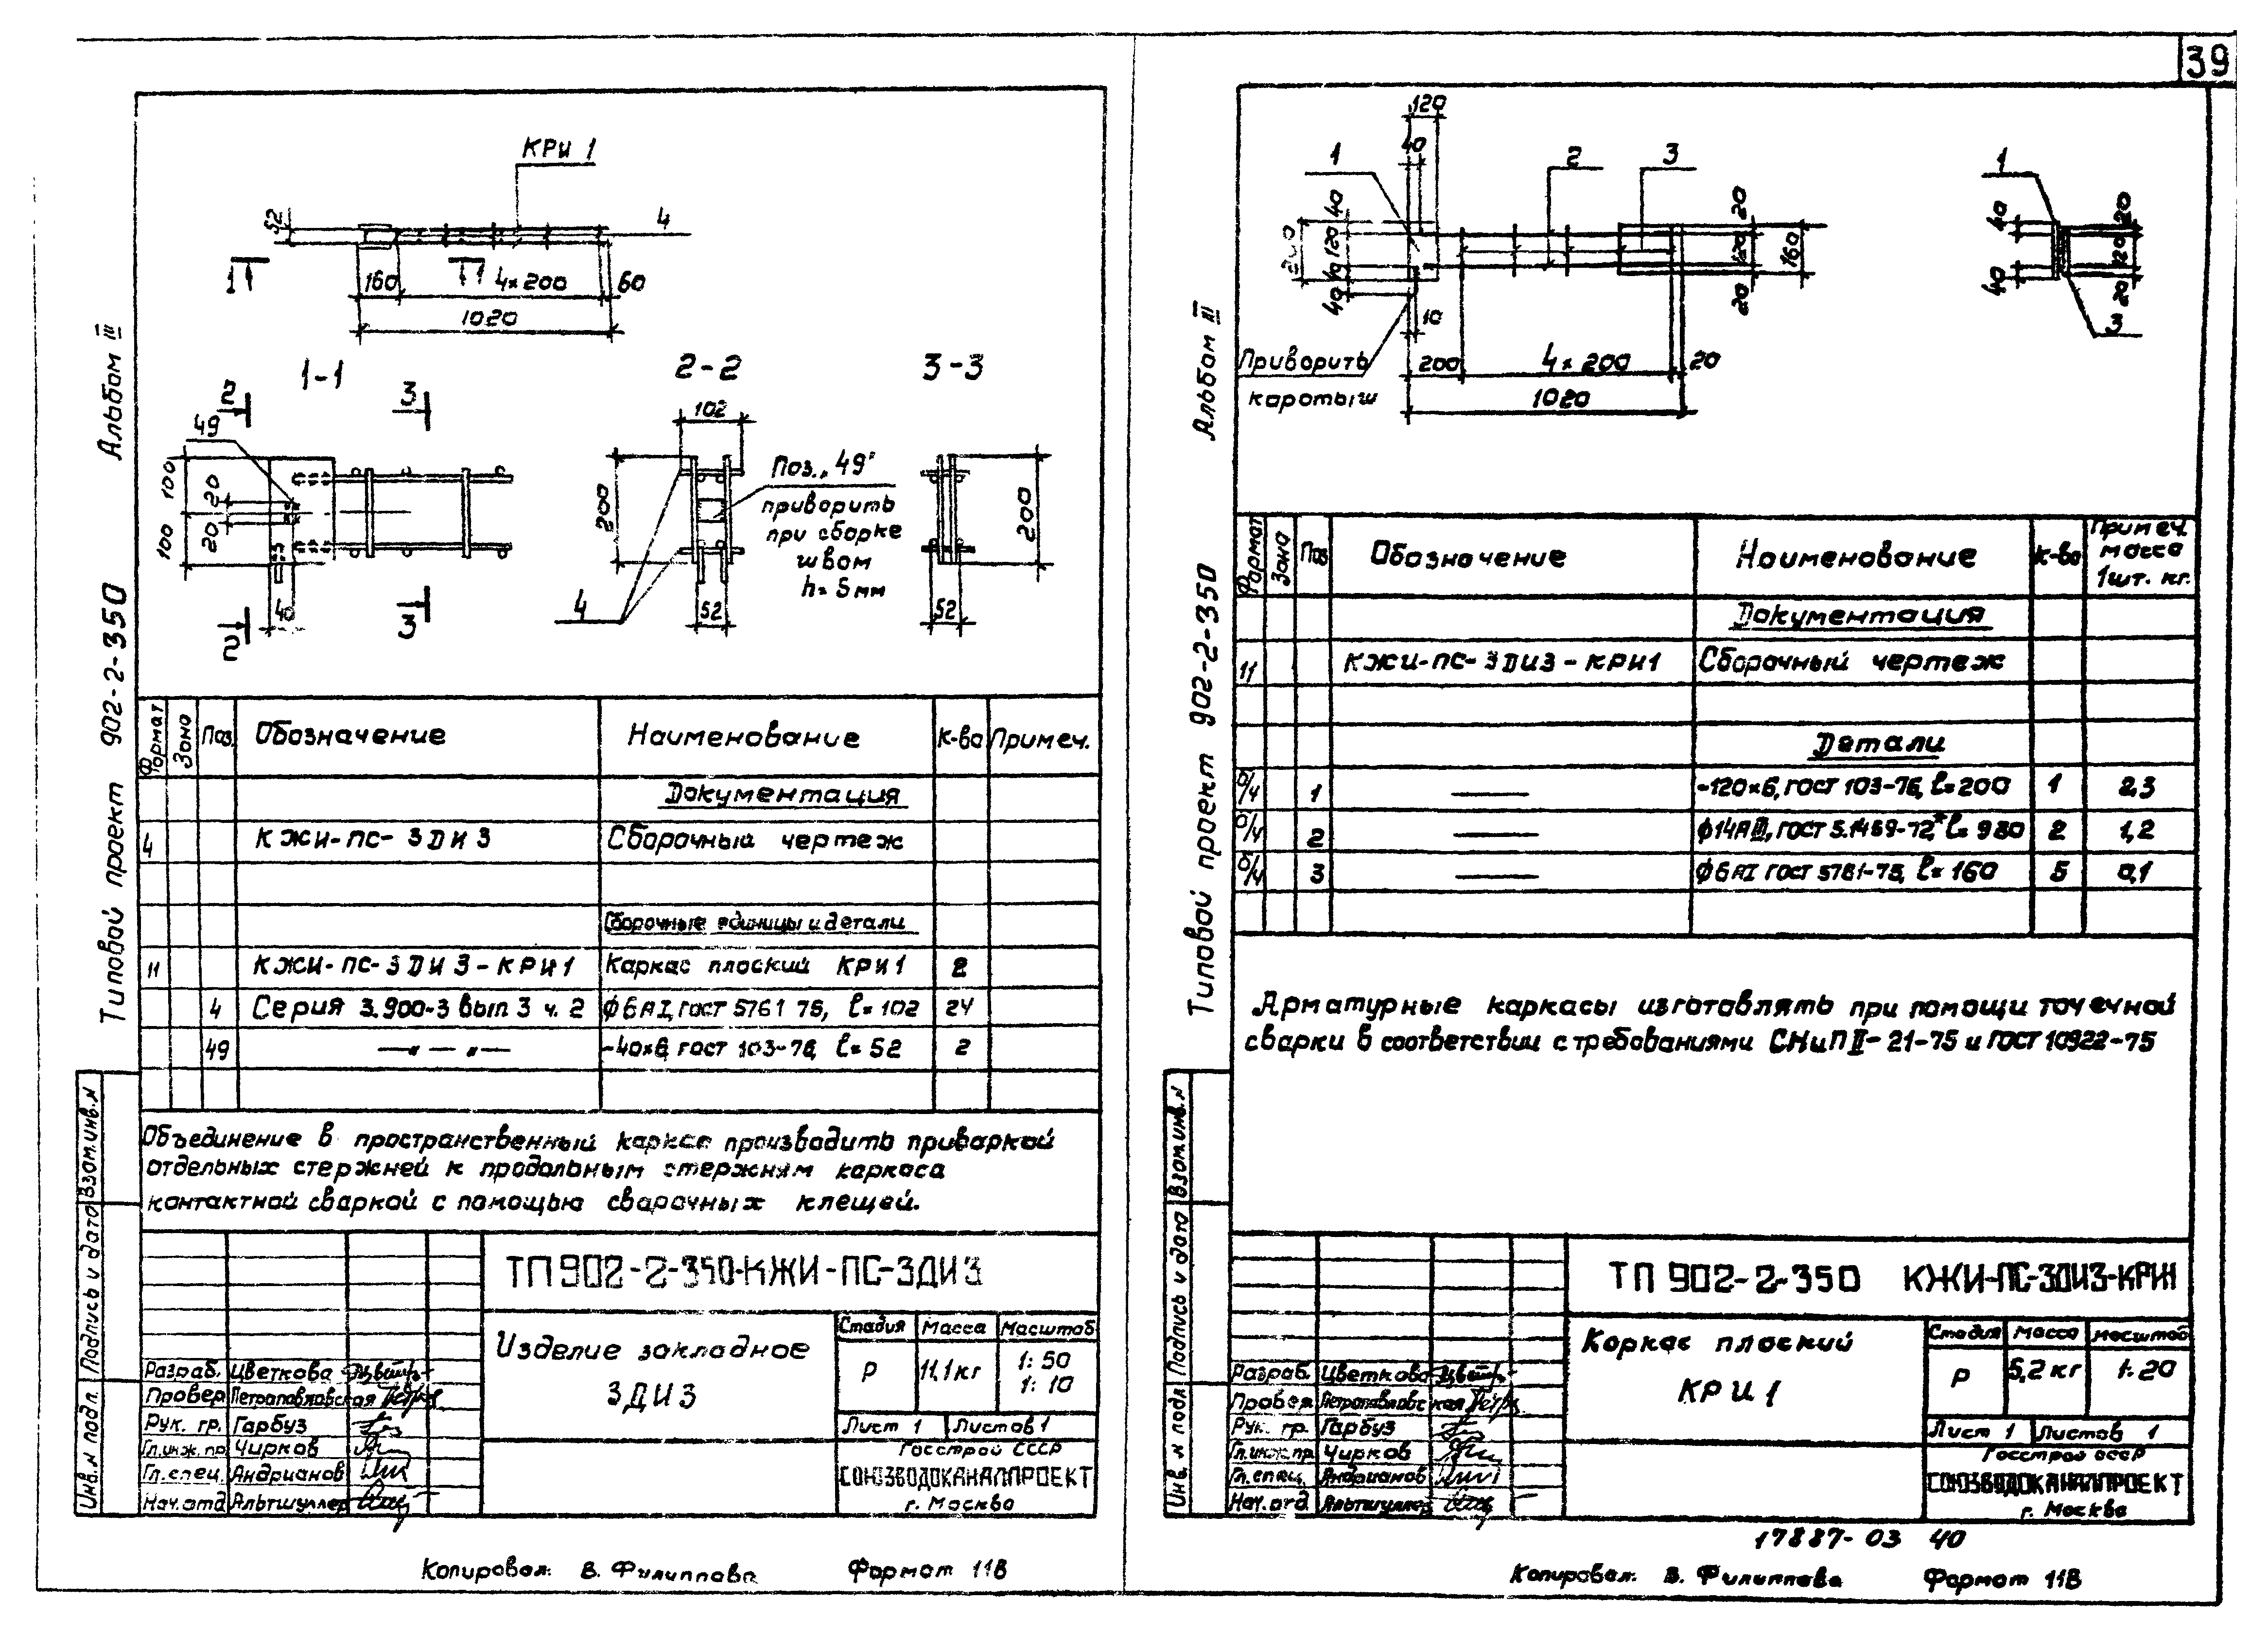 39
Типовой проект 902-2-350 Альбом III
КРИ 1
4
52
1
1
160
4×200
60
1020
1-1
2-2
3-3
2
3
49
100
100
20
20
40
2
3
102
200
4
52
Поз. „49"
приворить
при сборке
швом
h=5мм
200
52
Формат
Зона
Поз.
Обозначение
Наименование
К-во
Примеч.
Документация
4 КЖИ-ПС-3ДИ3 Сборочный чертеж
Сборочные единицы и детали
11 КЖИ-ПС-3ДИ3-КРИ1 Каркас плоский КРИ1 2
4 Серия 3.900-3 вып 3 ч. 2 ф6АI, ГОСТ 5781 75, ℓ=102 24
49 —〃—〃— -40×6, ГОСТ 103-76, ℓ=52 2
Объединение в пространственный каркас производить приваркой
отдельных стержней к продольным стержням каркаса
контактной сваркой с помощью сварочных клещей.
Инв.N подл. Подпись и дата Взам.инв.N
ТП 902-2-350-КЖИ-ПС-3ДИ3
Изделие закладное
3ДИ3
Стадия Масса Масштаб
Р 11,1кг 1:50
1:10
Лист 1 Листов 1
Госстрой СССР
СОЮЗВОДОКАНАЛПРОЕКТ
г. Москва
Разраб. Цветкова
Провер Петропавловская
Рук. гр. Гарбуз
Гл.инж.пр. Чирков
Гл.спец. Андрианов
Нач.отд Альтшуллер
Копировал: В. Филиппова Формат 11В
Типовой проект 902-2-350 Альбом III
120
40
1
2
3
200
40
120
40
40
10
Приворить
каротыш
200
4×200
20
1020
20
120
20
160
1
40
40
20
120
20
3
Формат
Зона
Поз
Обозначение
Наименование
К-во
Примеч.
масса
1шт. кг.
Документация
11 КЖИ-ПС-3ДИ3-КРИ1 Сборочный чертеж
Детали
б/ч 1 —— -120×6, ГОСТ 103-76, ℓ=200 1 2,3
б/ч 2 —— ф14АIII, ГОСТ 5.1459-72* ℓ=980 2 1,2
б/ч 3 —— ф6АI ГОСТ 5781-75, ℓ=160 5 0,1
Арматурные каркасы изготовлять при помощи точечной
сварки в соответствии с требованиями СНиП II-21-75 и ГОСТ 10922-75
Инв. N подл Подпись и дата Взам.инв.N
ТП 902-2-350 КЖИ-ПС-3ДИ3-КРИ1
Каркас плоский
КРИ1
Стадия Масса Масштаб
Р 5,2кг 1:20
Лист 1 Листов 1
Госстрой СССР
СОЮЗВОДОКАНАЛПРОЕКТ
г. Москва
Разраб. Цветкова
Провер. Петропавловская
Рук. гр. Гарбуз
Гл.инж.пр Чирков
Гл.спец. Андрианов
Нач. отд. Альтшуллер
17887-03 40
Копировал: В. Филиппова Формат 11В